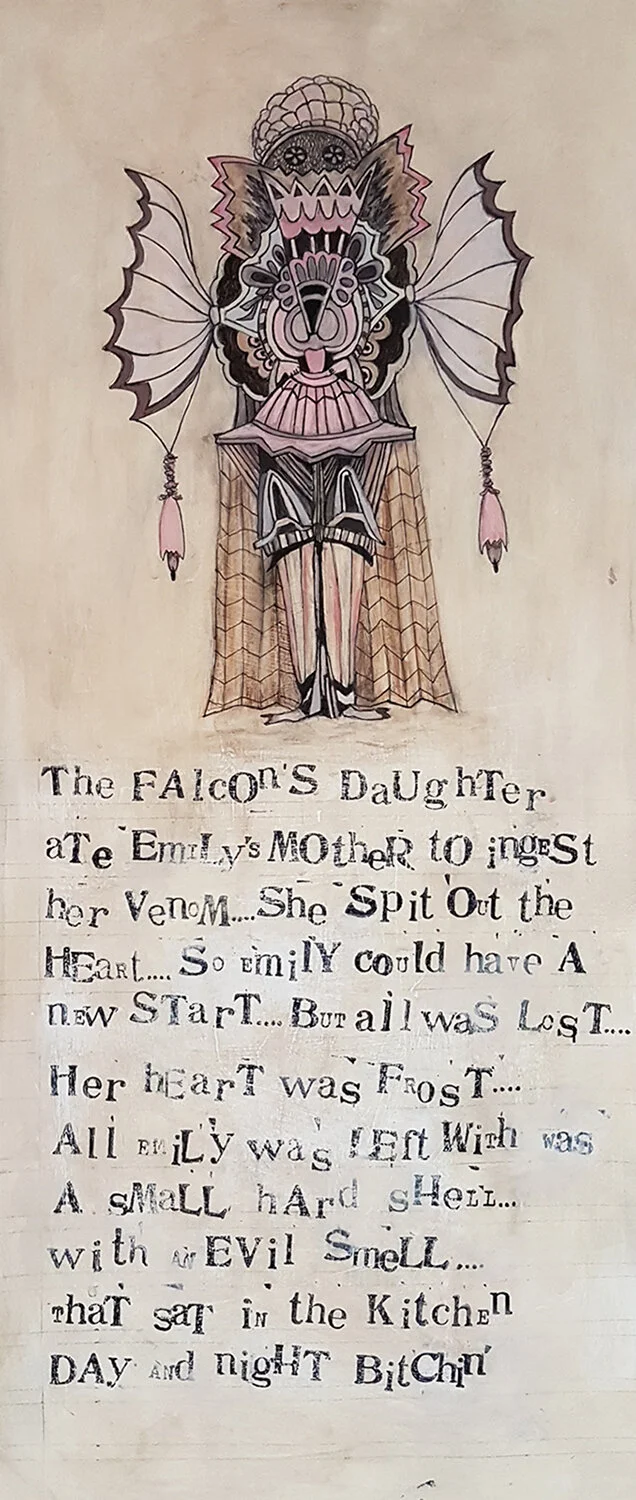 The FAlcOn'S DaUghTer
aTe EmiLy's MOtheR tO ingESt
her VenoM....She Spit Out the
HEaRt.... So EmilY could have A
nEw STarT.... BUT all waS LosT....
Her hEarT was FRosT....
All EMiLy was lEft WiTh was
A sMaLL hArd sHeLL...
with AN EVil SmeLL....
THaT saT iN the KitchEn
DAy ANd nigHT BitChin'